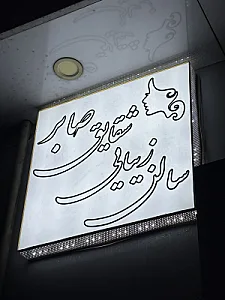 سالن زیبایی
شقایق صابر